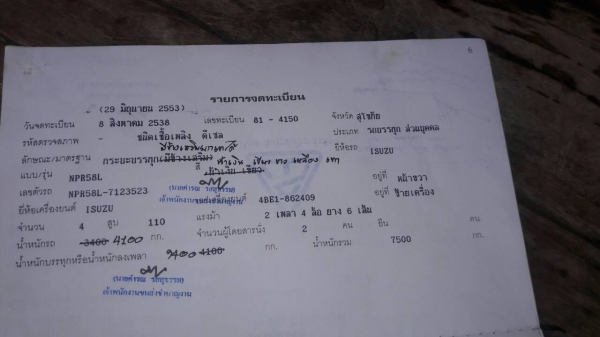 6
รายการจดทะเบียน
(29 มิถุนายน 2553)
วันจดทะเบียน 8 สิงหาคม 2538 เลขทะเบียน 81 - 4150 จังหวัด สุโขทัย
รหัสตรวจสภาพ - ชนิดเชื้อเพลิง ดีเซล ประเภท รถบรรทุก ส่วนบุคคล
ลักษณะ/มาตรฐาน กระบะบรรทุก(มีข้างเสริม) สี ฟ้าเงิน เขียว ขาว เหลือง เทา ยี่ห้อรถ ISUZU
แบบ/รุ่น NPR58L
เลขตัวรถ NPR58L-7123523 อยู่ที่ หน้าขวา
ยี่ห้อเครื่องยนต์ ISUZU 4BE1-862409 อยู่ที่ ซ้ายเครื่อง
เจ้าพนักงานขนส่งชำนาญงาน
จำนวน 4 สูบ 110 แรงม้า 2 เพลา 4 ล้อ ยาง 6 เส้น
น้ำหนักรถ 3400 4100 กก. จำนวนผู้โดยสารนั่ง 2 คน ยืน คน
น้ำหนักบรรทุกหรือน้ำหนักลงเพลา 3400 4100 กก. น้ำหนักรวม 7500 กก.
เจ้าพนักงานขนส่งชำนาญงาน